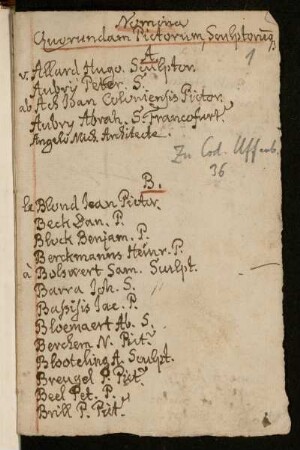 Nomina
Quorundam Pictorum, Sculptorūq
1
A
v. Allard Hugo. Sculptor.
Aubry Peter. S.
ab Ach Ioan Coloniensis Pictor.
Aubry Abrah. S. Francofurt.
Angelo Mich. Architecte.
Zu Cod. Uffenb.
36
B.
le Blond Jean Pictor.
Beck Dan. P.
Block Benjam. P.
Berckmanns Heinr. P.
à Bolswert Sam. Sculpt.
Barra Joh. S.
Bassisis Jac. P.
Bloemaert Ab. S.
Berchem N. Pict.
Blooteling A. Sculpt.
Breugel P. Pict.
Beel Pet. P.
Brill P. Pict.